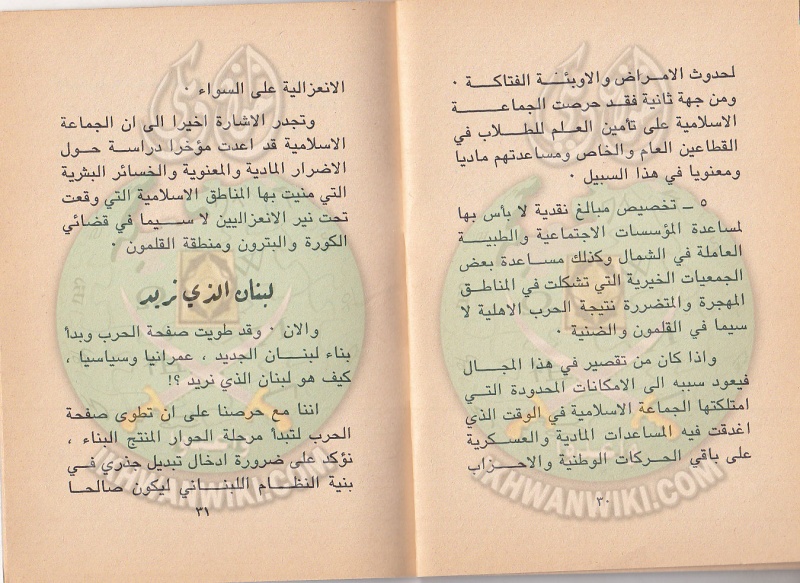 لحدوث الامراض والاوبئة الفتاكة ٠
ومن جهة ثانية فقد حرصت الجماعة
الاسلامية على تأمين العلم للطلاب في
القطاعين العام والخاص ومساعدتهم ماديا
ومعنويا في هذا السبيل ٠
٥ ــ تخصيص مبالغ نقدية لا بأس بها
لمساعدة المؤسسات الاجتماعية والطبية
العاملة في الشمال وكذلك مساعدة بعض
الجمعيات الخيرية التي تشكلت في المناطق
المهجرة والمتضررة نتيجة الحرب الاهلية لا
سيما في القلمون والضنية ٠
واذا كان من تقصير في هذا المجال
فيعود سببه الى الامكانات المحدودة التي
امتلكتها الجماعة الاسلامية في الوقت الذي
اغدقت فيه المساعدات المادية والعسكرية
على باقي الحركات الوطنية والاحزاب
٣٠
الانعزالية على السواء ٠
وتجدر الاشارة اخيرا الى ان الجماعة
الاسلامية قد اعدت مؤخرا دراسة حول
الاضرار المادية والمعنوية والخسائر البشرية
التي منيت بها المناطق الاسلامية التي وقعت
تحت نير الانعزاليين لا سيما في قضائي
الكورة والبترون ومنطقة القلمون ٠
لبنان الذي نريد
والان ٠ وقد طويت صفحة الحرب وبدأ
بناء لبنان الجديد ، عمرانيا وسياسيا ،
كيف هو لبنان الذي نريد ؟!
اننا مع حرصنا على ان تطوى صفحة
الحرب لتبدأ مرحلة الحوار المنتج البناء ،
نؤكد على ضرورة ادخال تبديل جذري في
بنية النظام اللبناني ليكون صالحا
٣١
IKHWANWIKI.COM
IKHWANWIKI.COM